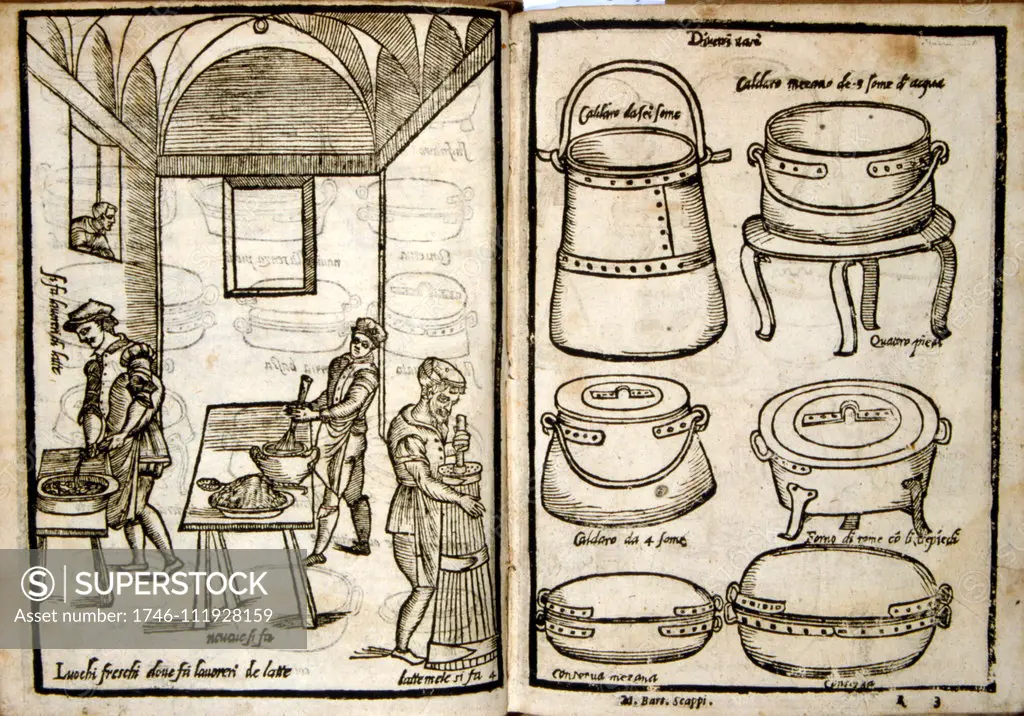 si fa lavoreri de latte
neve si fa
Luochi freschi doue fà lauoreri de latte
lattemele si fa 4
Diuersi uasi
Caldaro da sei some
Caldaro mezano de 3 some d'acqua
Quatro piedi
Caldaro da 4 some
Forno di rame cō li trepiedi
conserua mezana
conserua
M. Bart. Scappi.
3
SuperStock®
Asset Number
1746-111928159